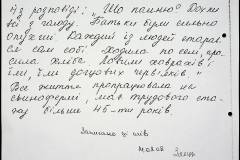 Із розповіді: „Що памʼяю? Дохли
ми з голоду. Батьки були сильно
опухші. Кожний із людей старав-
ся сам собі. Ходила по селі, про-
сила хліба. Ловили ховрахів і
їли, їли дощових червʼяків."
Все життя пропрацювала на
свинофермі, має трудового ста-
жу більше 45-ти років
Записано зі слів